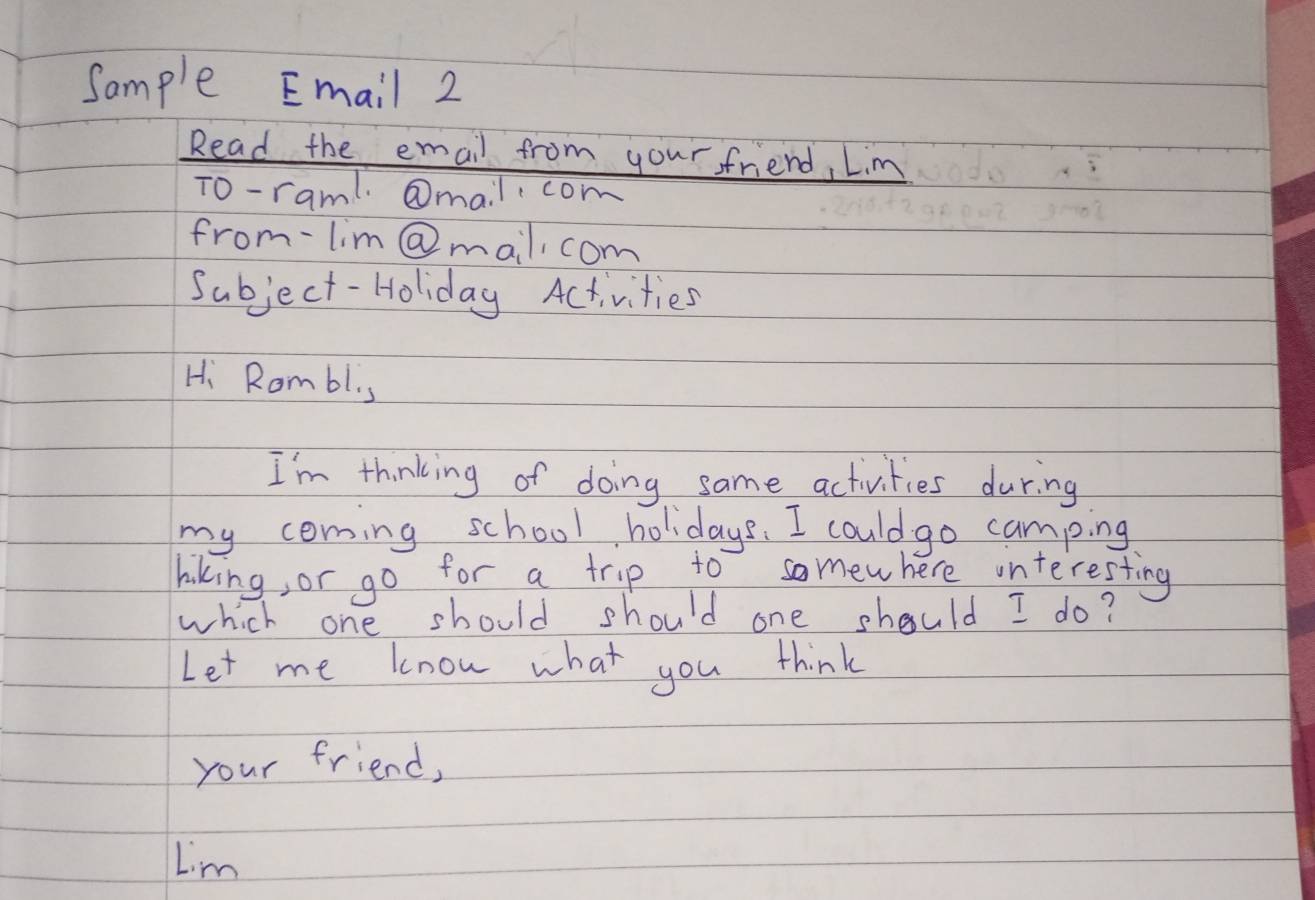 Sample Email 2
Read the email from your friend, Lim
TO - ramli @mail.com
from - lim @mail.com
Subject - Holiday Activities
Hi Rambli,
I'm thinking of doing same activities during
my coming school holidays. I could go camping
hiking, or go for a trip to somewhere interesting
which one should should one should I do?
Let me know what you think
your friend,
Lim